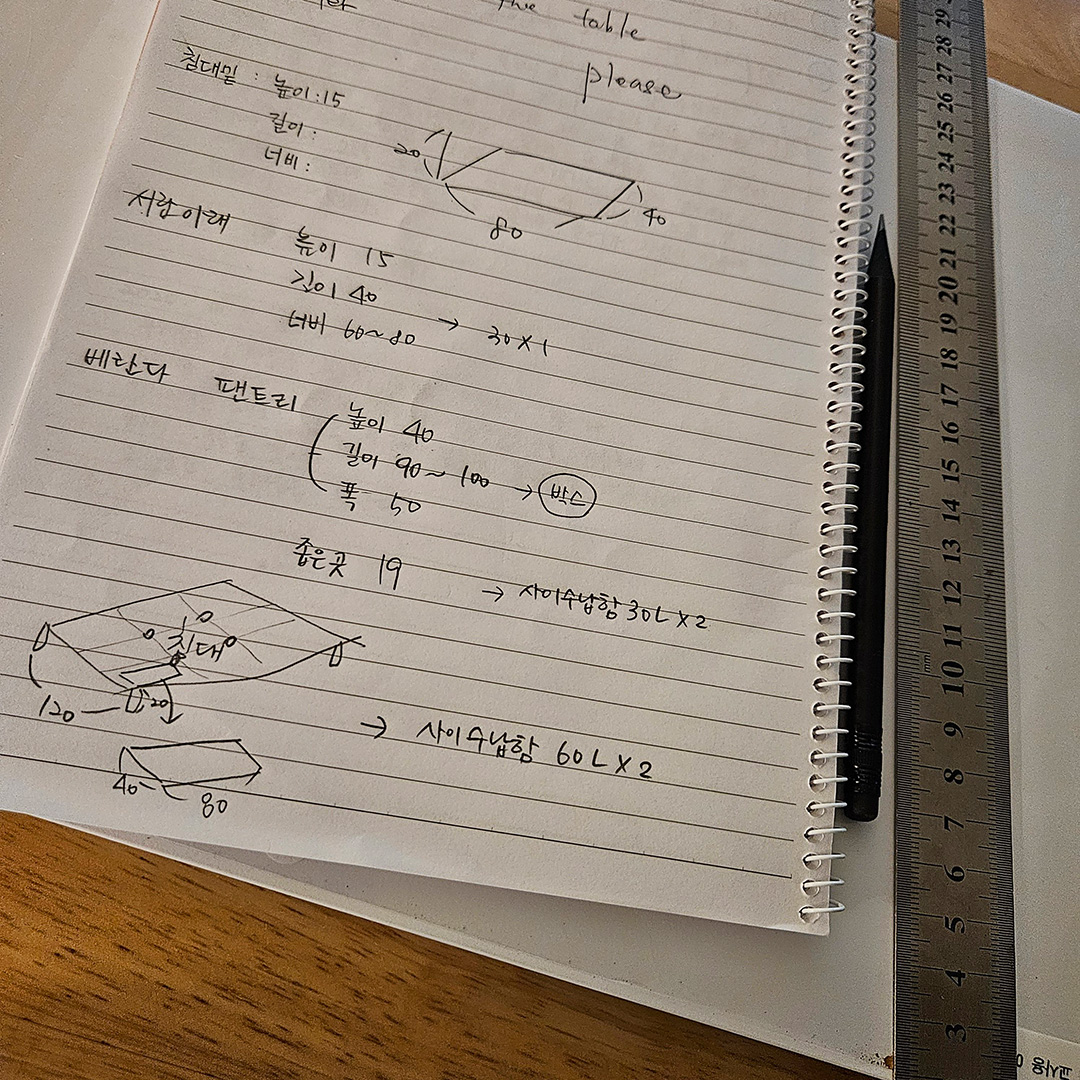 the table
please
침대밑 : 높이 : 15
길이 :
너비 :
20
80
40
서랍아래
높이 15
길이 40
너비 60~80 → 30 X 1
베란다 팬트리
높이 40
길이 90~100 → 박스
폭 50
좁은곳 19 → 사이수납함 30L X 2
침대
120
20
→ 사이수납함 60L X 2
40
80
29
28
27
26
25
24
23
22
21
20
19
18
17
16
15
14
13
12
11
10
9
8
7
6
5
4
3
mm